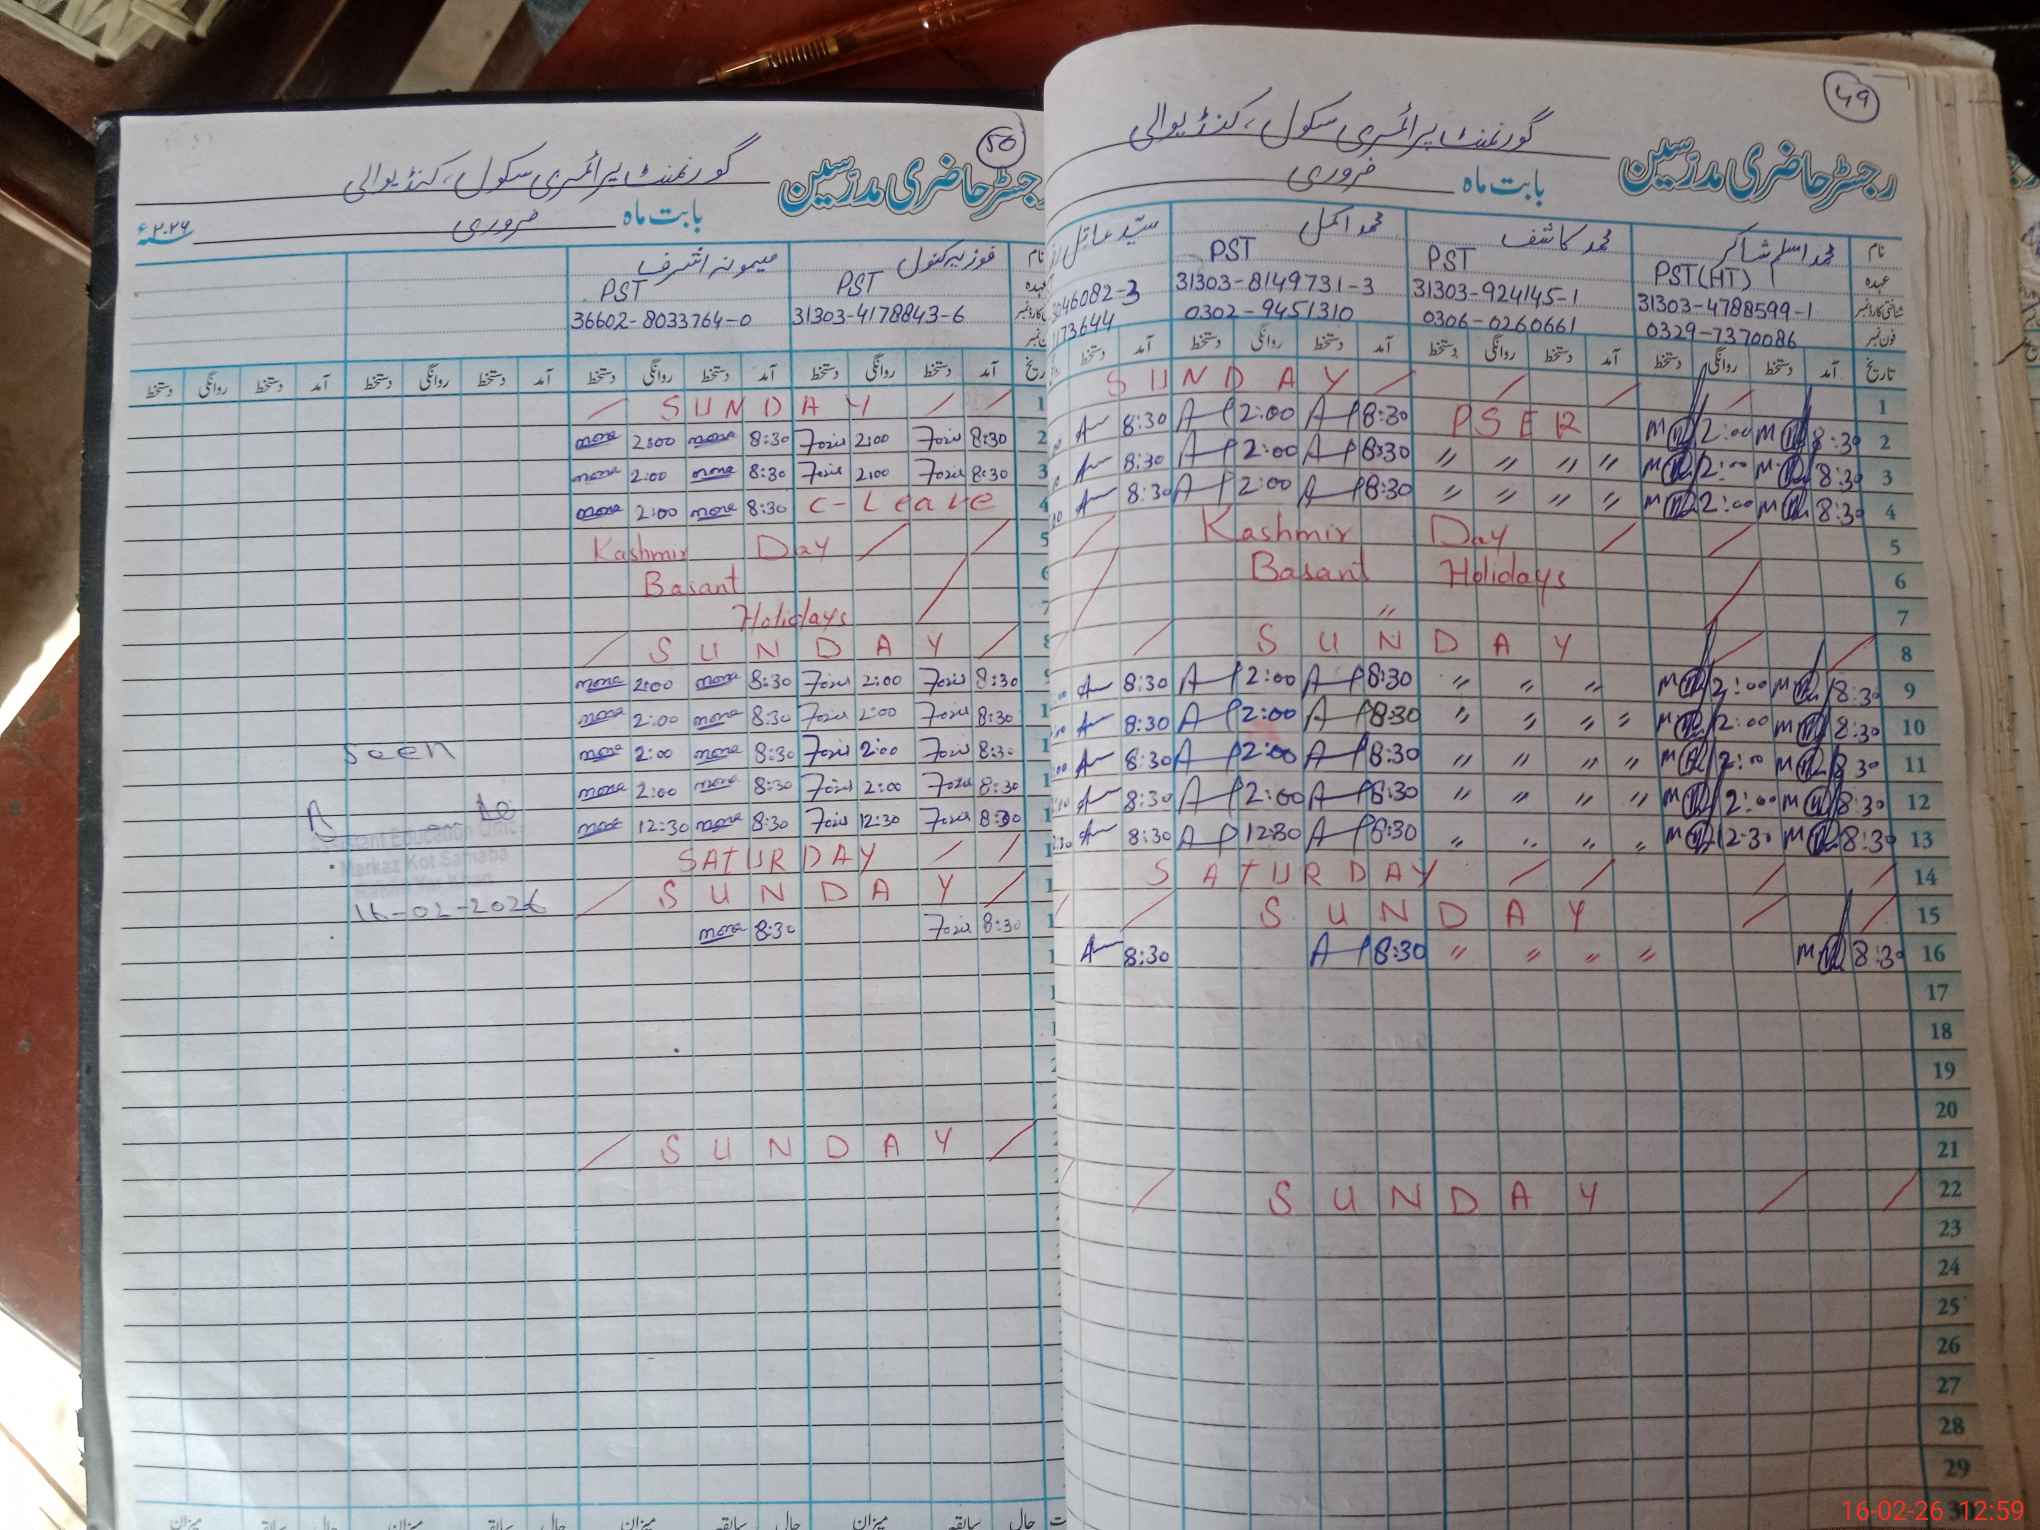 49
رجسٹر حاضری مدرسین گورنمنٹ پرائمری سکول، کنڈیوالی
بابت ماہ فروری
نام محمد اسلم شاکر محمد کاشف محمد اکمل سیّد عادل
عہدہ PST(HT) PST PST
شناختی کارڈ نمبر 31303-4788599-1 31303-924145-1 31303-8149731-3 3046082-3
فون نمبر 0329-7370086 0306-0260661 0302-9451310 1173644
تاریخ آمد دستخط روانگی دستخط آمد دستخط روانگی دستخط آمد دستخط روانگی دستخط آمد دستخط
1 SUNDAY
2 8:30 2:00 PSER 8:30 2:00 8:30
3 8:30 2:00 〃 〃 〃 〃 8:30 2:00 8:30
4 8:30 2:00 〃 〃 〃 〃 8:30 2:00 8:30
5 Kashmir Day
6 Basant Holidays
7 〃
8 SUNDAY
9 8:30 2:00 〃 〃 〃 8:30 2:00 8:30
10 8:30 2:00 〃 〃 〃 〃 8:30 2:00 8:30
11 8:30 2:00 〃 〃 〃 〃 8:30 2:00 8:30
12 8:30 2:00 〃 〃 〃 〃 8:30 2:00 8:30
13 8:30 12:30 〃 〃 〃 〃 8:30 12:30 8:30
14 SATURDAY
15 SUNDAY
16 8:30 〃 〃 〃 〃 8:30 8:30
17
18
19
20
21
22 SUNDAY
23
24
25
26
27
28
29
50
رجسٹر حاضری مدرسین گورنمنٹ پرائمری سکول، کنڈیوالی
بابت ماہ فروری ۲۰۲۶ء
نام فوزیہ کنول میمونہ اشرف
عہدہ PST PST
31303-4178843-6 36602-8033764-0
آمد دستخط روانگی دستخط آمد دستخط روانگی دستخط آمد دستخط روانگی دستخط آمد دستخط روانگی دستخط
1 SUNDAY
2 8:30 Fozia 2:00 Fozia 8:30 mona 2:00 mona
3 8:30 Fozia 2:00 Fozia 8:30 mona 2:00 mona
4 C-Leave 8:30 mona 2:00 mona
5 Kashmir Day
6 Basant
7 Holidays
8 SUNDAY
8:30 Fozia 2:00 Fozia 8:30 mona 2:00 mona
8:30 Fozia 2:00 Fozia 8:30 mona 2:00 mona
8:30 Fozia 2:00 Fozia 8:30 mona 2:00 mona
8:30 Fozia 2:00 Fozia 8:30 mona 2:00 mona
8:30 Fozia 12:30 Fozia 8:30 mona 12:30 mona
SATURDAY
SUNDAY
8:30 Fozia 8:30 mona
SUNDAY
Seen
Assistant Education Officer
Markaz Kot Samaba
16-02-2026
حال سابقہ میزان حال سابقہ میزان حال سابقہ میزان حال سابقہ میزان
16-02-26 12:59